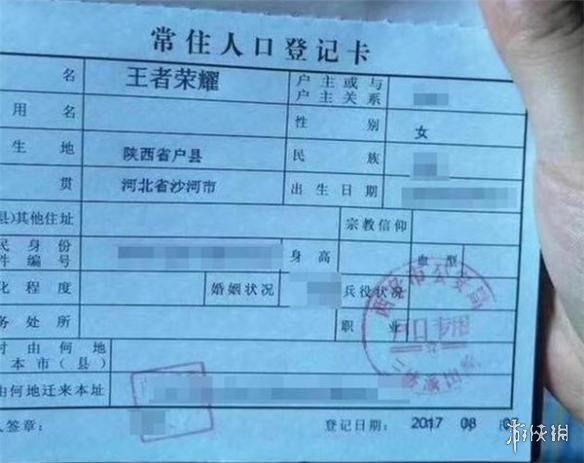 常住人口登记卡
名 王者荣耀 户主或与户主关系
用名 性别 女
生地 陕西省户县 民族
贯 河北省沙河市 出生日期
县)其他住址 宗教信仰
民身份
件编号 身高 血型
化程度 婚姻状况 兵役状况
务处所 职业
时由何地
本市(县)
由何地迁来本址
人签章: 登记日期: 2017 08 07
游侠网